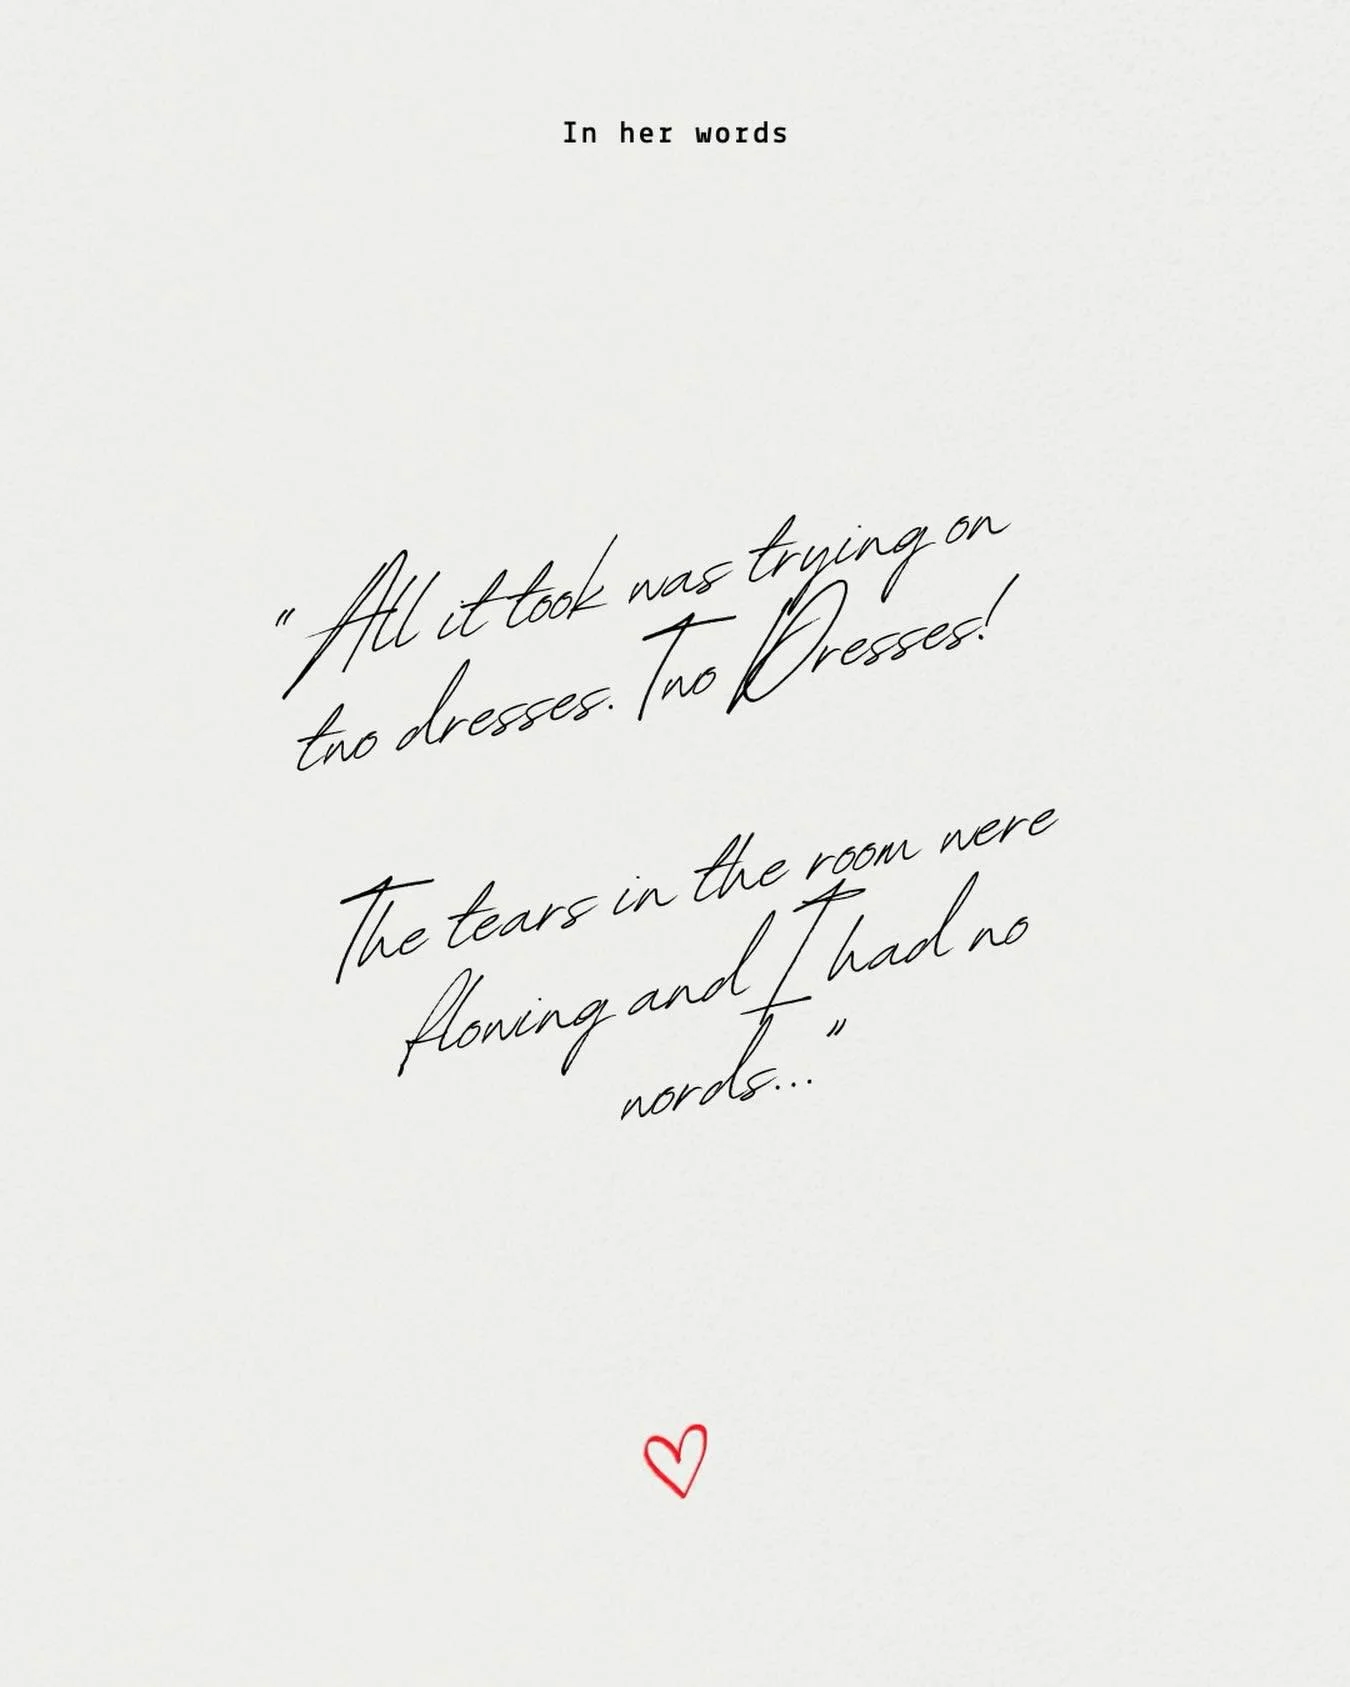 In her words
"All it took was trying on
two dresses. Two Dresses!
The tears in the room were
flowing and I had no
words..."